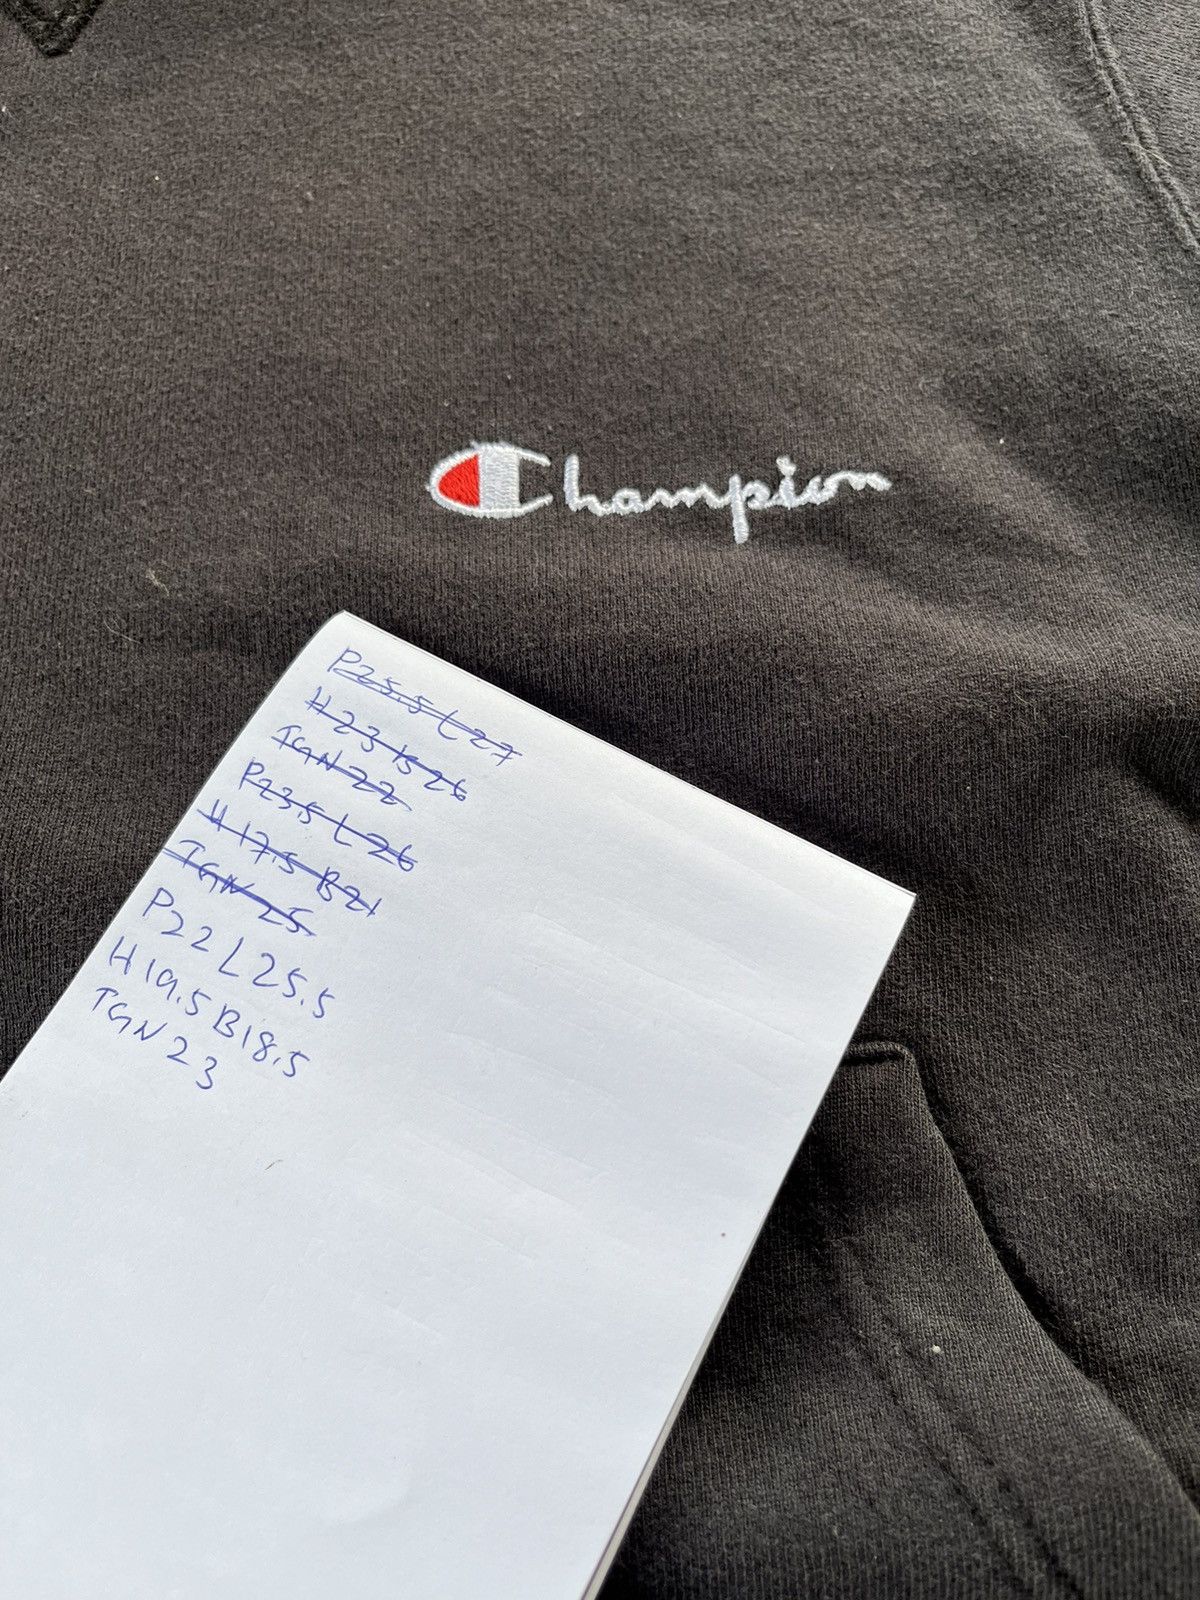 Champion
P25.5 L27
H23 B26
TGN 22
P23.5 L26
H17.5 B21
TGN 25
P22 L25.5
H19.5 B18.5
TGN 23